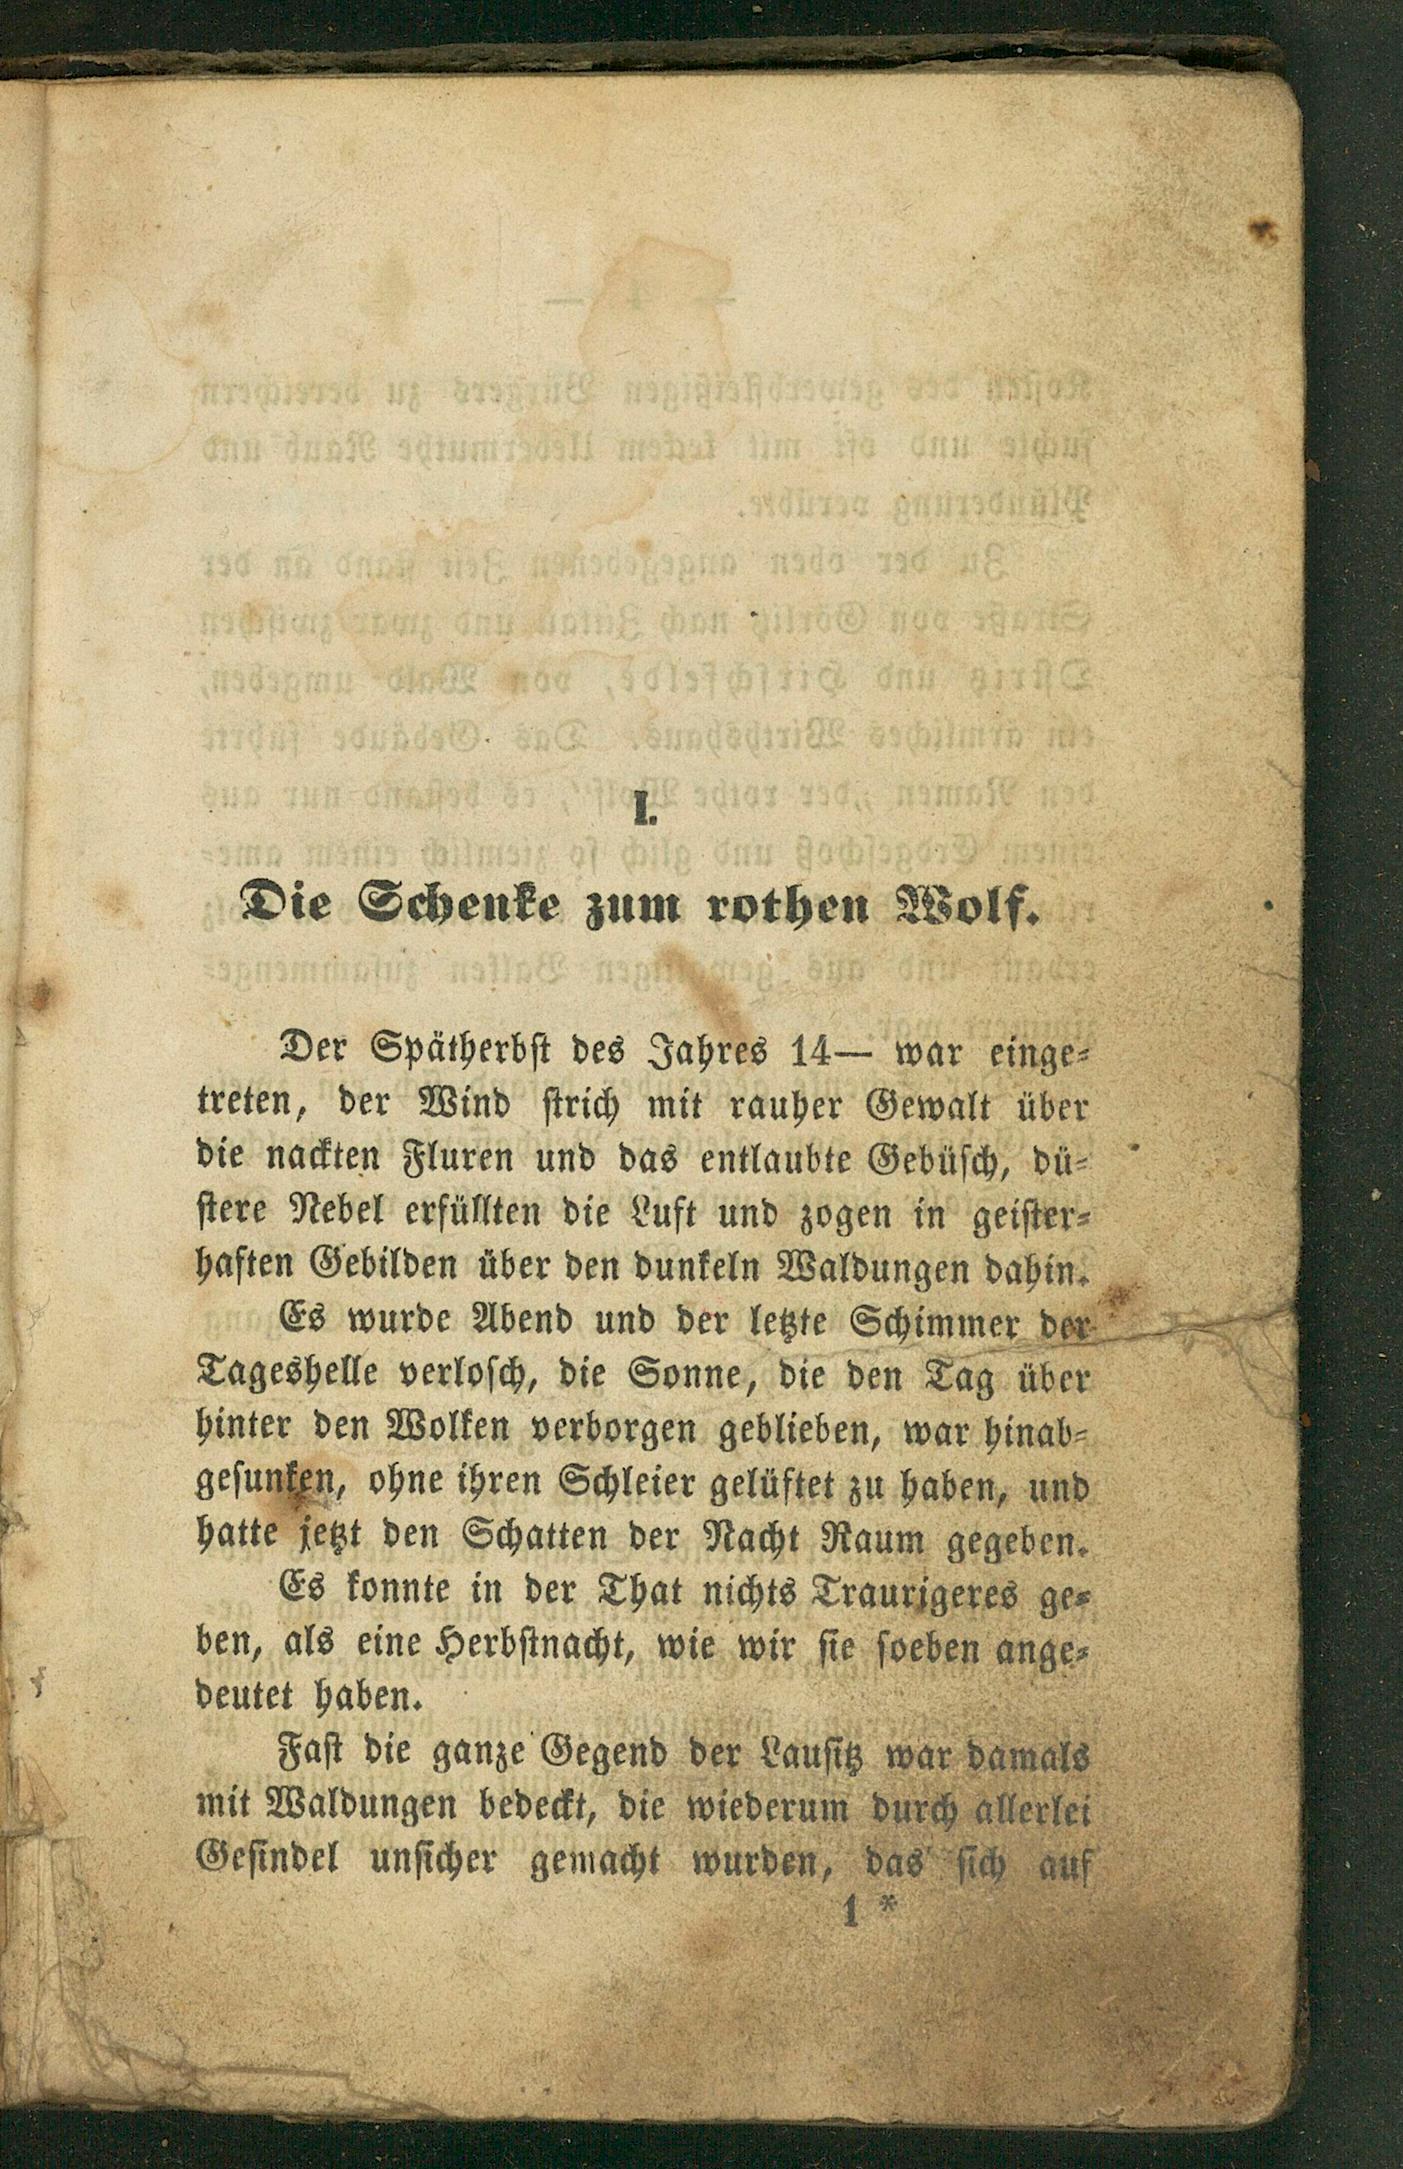 I.
Die Schenke zum rothen Wolf.
Der Spätherbst des Jahres 14— war einge-
treten, der Wind strich mit rauher Gewalt über
die nackten Fluren und das entlaubte Gebüsch, dü-
stere Nebel erfüllten die Luft und zogen in geister-
haften Gebilden über den dunkeln Waldungen dahin.
Es wurde Abend und der letzte Schimmer der
Tageshelle verlosch, die Sonne, die den Tag über
hinter den Wolken verborgen geblieben, war hinab-
gesunken, ohne ihren Schleier gelüftet zu haben, und
hatte jetzt den Schatten der Nacht Raum gegeben.
Es konnte in der That nichts Traurigeres ge-
ben, als eine Herbstnacht, wie wir sie soeben ange-
deutet haben.
Fast die ganze Gegend der Lausitz war damals
mit Waldungen bedeckt, die wiederum durch allerlei
Gesindel unsicher gemacht wurden, das sich auf
1 *